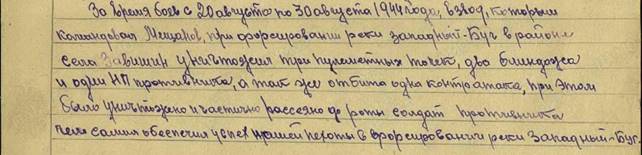 За время боев с 20 августа по 30 августа 1944 года, взвод, которым
командовал Мещанов, при форсировании реки западный-Буг в районе
села Завишин уничтожил три пулеметных точек, два блиндажа
и один НП противника, а так же отбита одна контратака, при этом
было уничтожено и частично рассеяно до роты солдат противника
чем самым обеспечил успех нашей пехоты в форсировании реки Западный-Буг